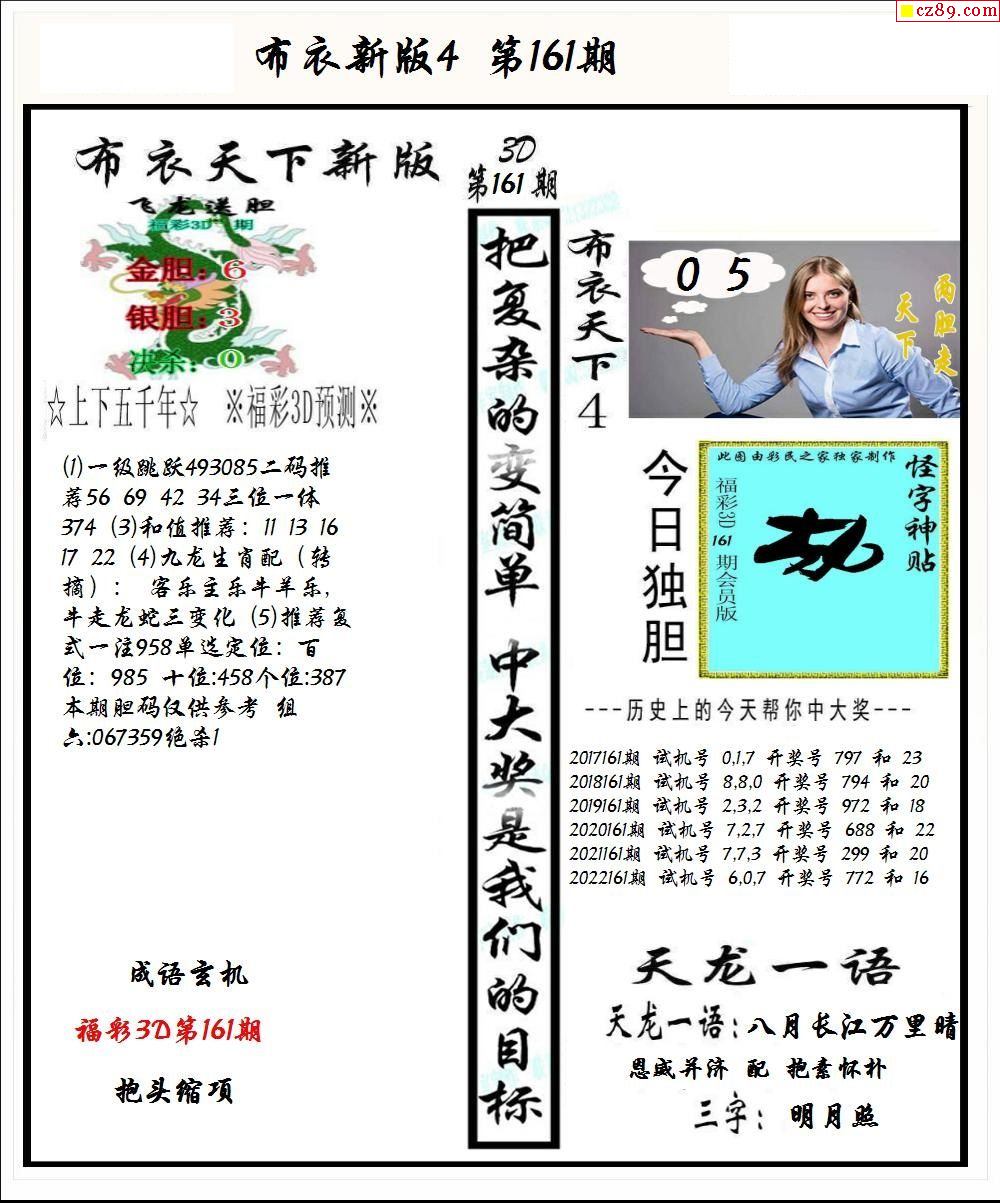 cz89.com
布衣新版4 第161期
布衣天下新版
飞龙送胆
福彩3D 期
金胆：6
银胆：3
决杀：0
☆上下五千年☆ ※福彩3D预测※
(1)一级跳跃493085二码推
荐56 69 42 34三位一体
374 (3)和值推荐：11 13 16
17 22 (4)九龙生肖配（转
摘）： 客乐主乐牛羊乐，
牛走龙蛇三变化 (5)推荐复
式一注958单选定位：百
位：985 十位:458个位:387
本期胆码仅供参考 组
六:067359绝杀1
成语玄机
福彩3D第161期
抱头缩项
3D
第161期
把复杂的变简单 中大奖是我们的目标
布衣天下4
0 5
天下
两胆走
今日独胆
此图由彩民之家独家制作
怪字神贴
福彩3D 161 期会员版
---历史上的今天帮你中大奖---
2017161期 试机号 0,1,7 开奖号 797 和 23
2018161期 试机号 8,8,0 开奖号 794 和 20
2019161期 试机号 2,3,2 开奖号 972 和 18
2020161期 试机号 7,2,7 开奖号 688 和 22
2021161期 试机号 7,7,3 开奖号 299 和 20
2022161期 试机号 6,0,7 开奖号 772 和 16
天龙一语
天龙一语：八月长江万里晴
恩威并济 配 抱素怀朴
三字：明月照